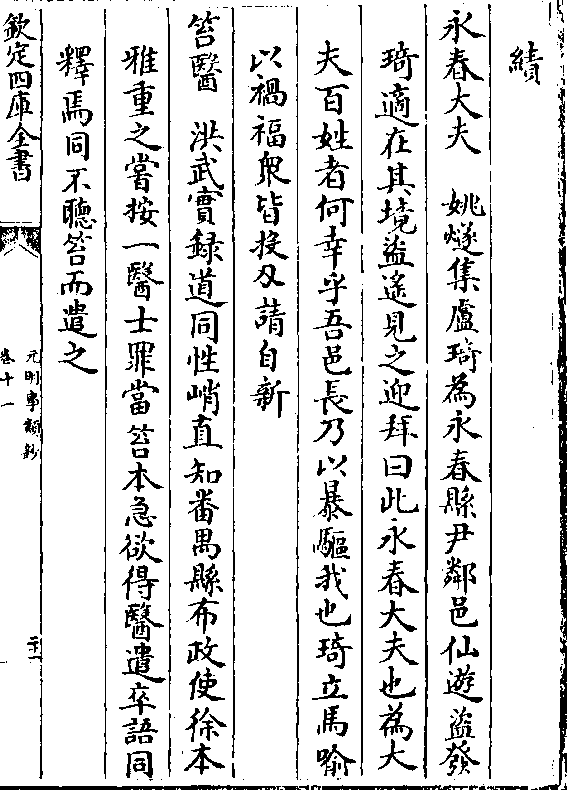 績
永春大夫　姚燧集盧琦為永春縣尹鄰邑仙遊盜發
琦適在其境盜遙見之迎拜曰此永春大夫也為大
夫百姓者何幸乎吾邑長乃以暴驅我也琦立馬喻
以禍福衆皆投刃請自新
笞醫　洪武實録道同性峭直知番禺縣布政使徐本
雅重之嘗按一醫士罪當笞本急欲得醫遣卒語同
釋焉同不聽笞而遣之
欽定四庫全書
元明事類鈔
卷十一
二十一